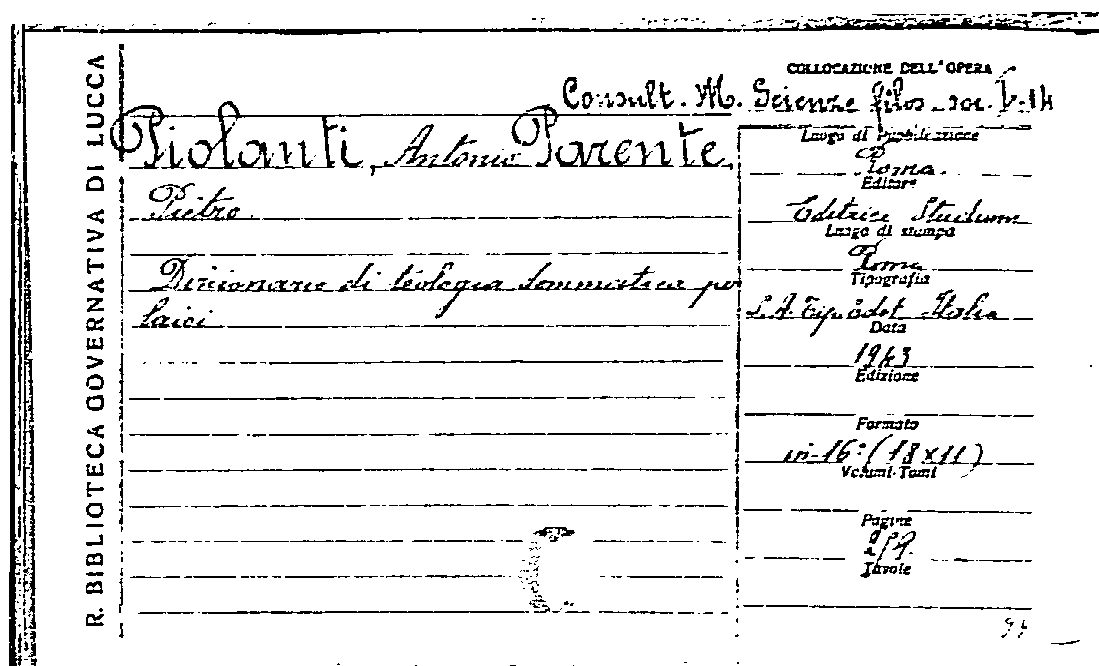 R. BIBLIOTECA GOVERNATIVA DI LUCCA
COLLOCAZIONE DELL'OPERA
Consult. M. Scienze filos. soc. V. 14
Piolanti, Antonio Parente,
Pietro
Dizionario di teologia dommatica per
laici
Luogo di Pubblicazione
Roma.
Editore
Editrice Studium
Luogo di stampa
Roma
Tipografia
S.A. Tip. Edit. Italia
Data
1943
Edizione
Formato
in-16° (18x11)
Volumi-Tomi
Pagine
Tavole